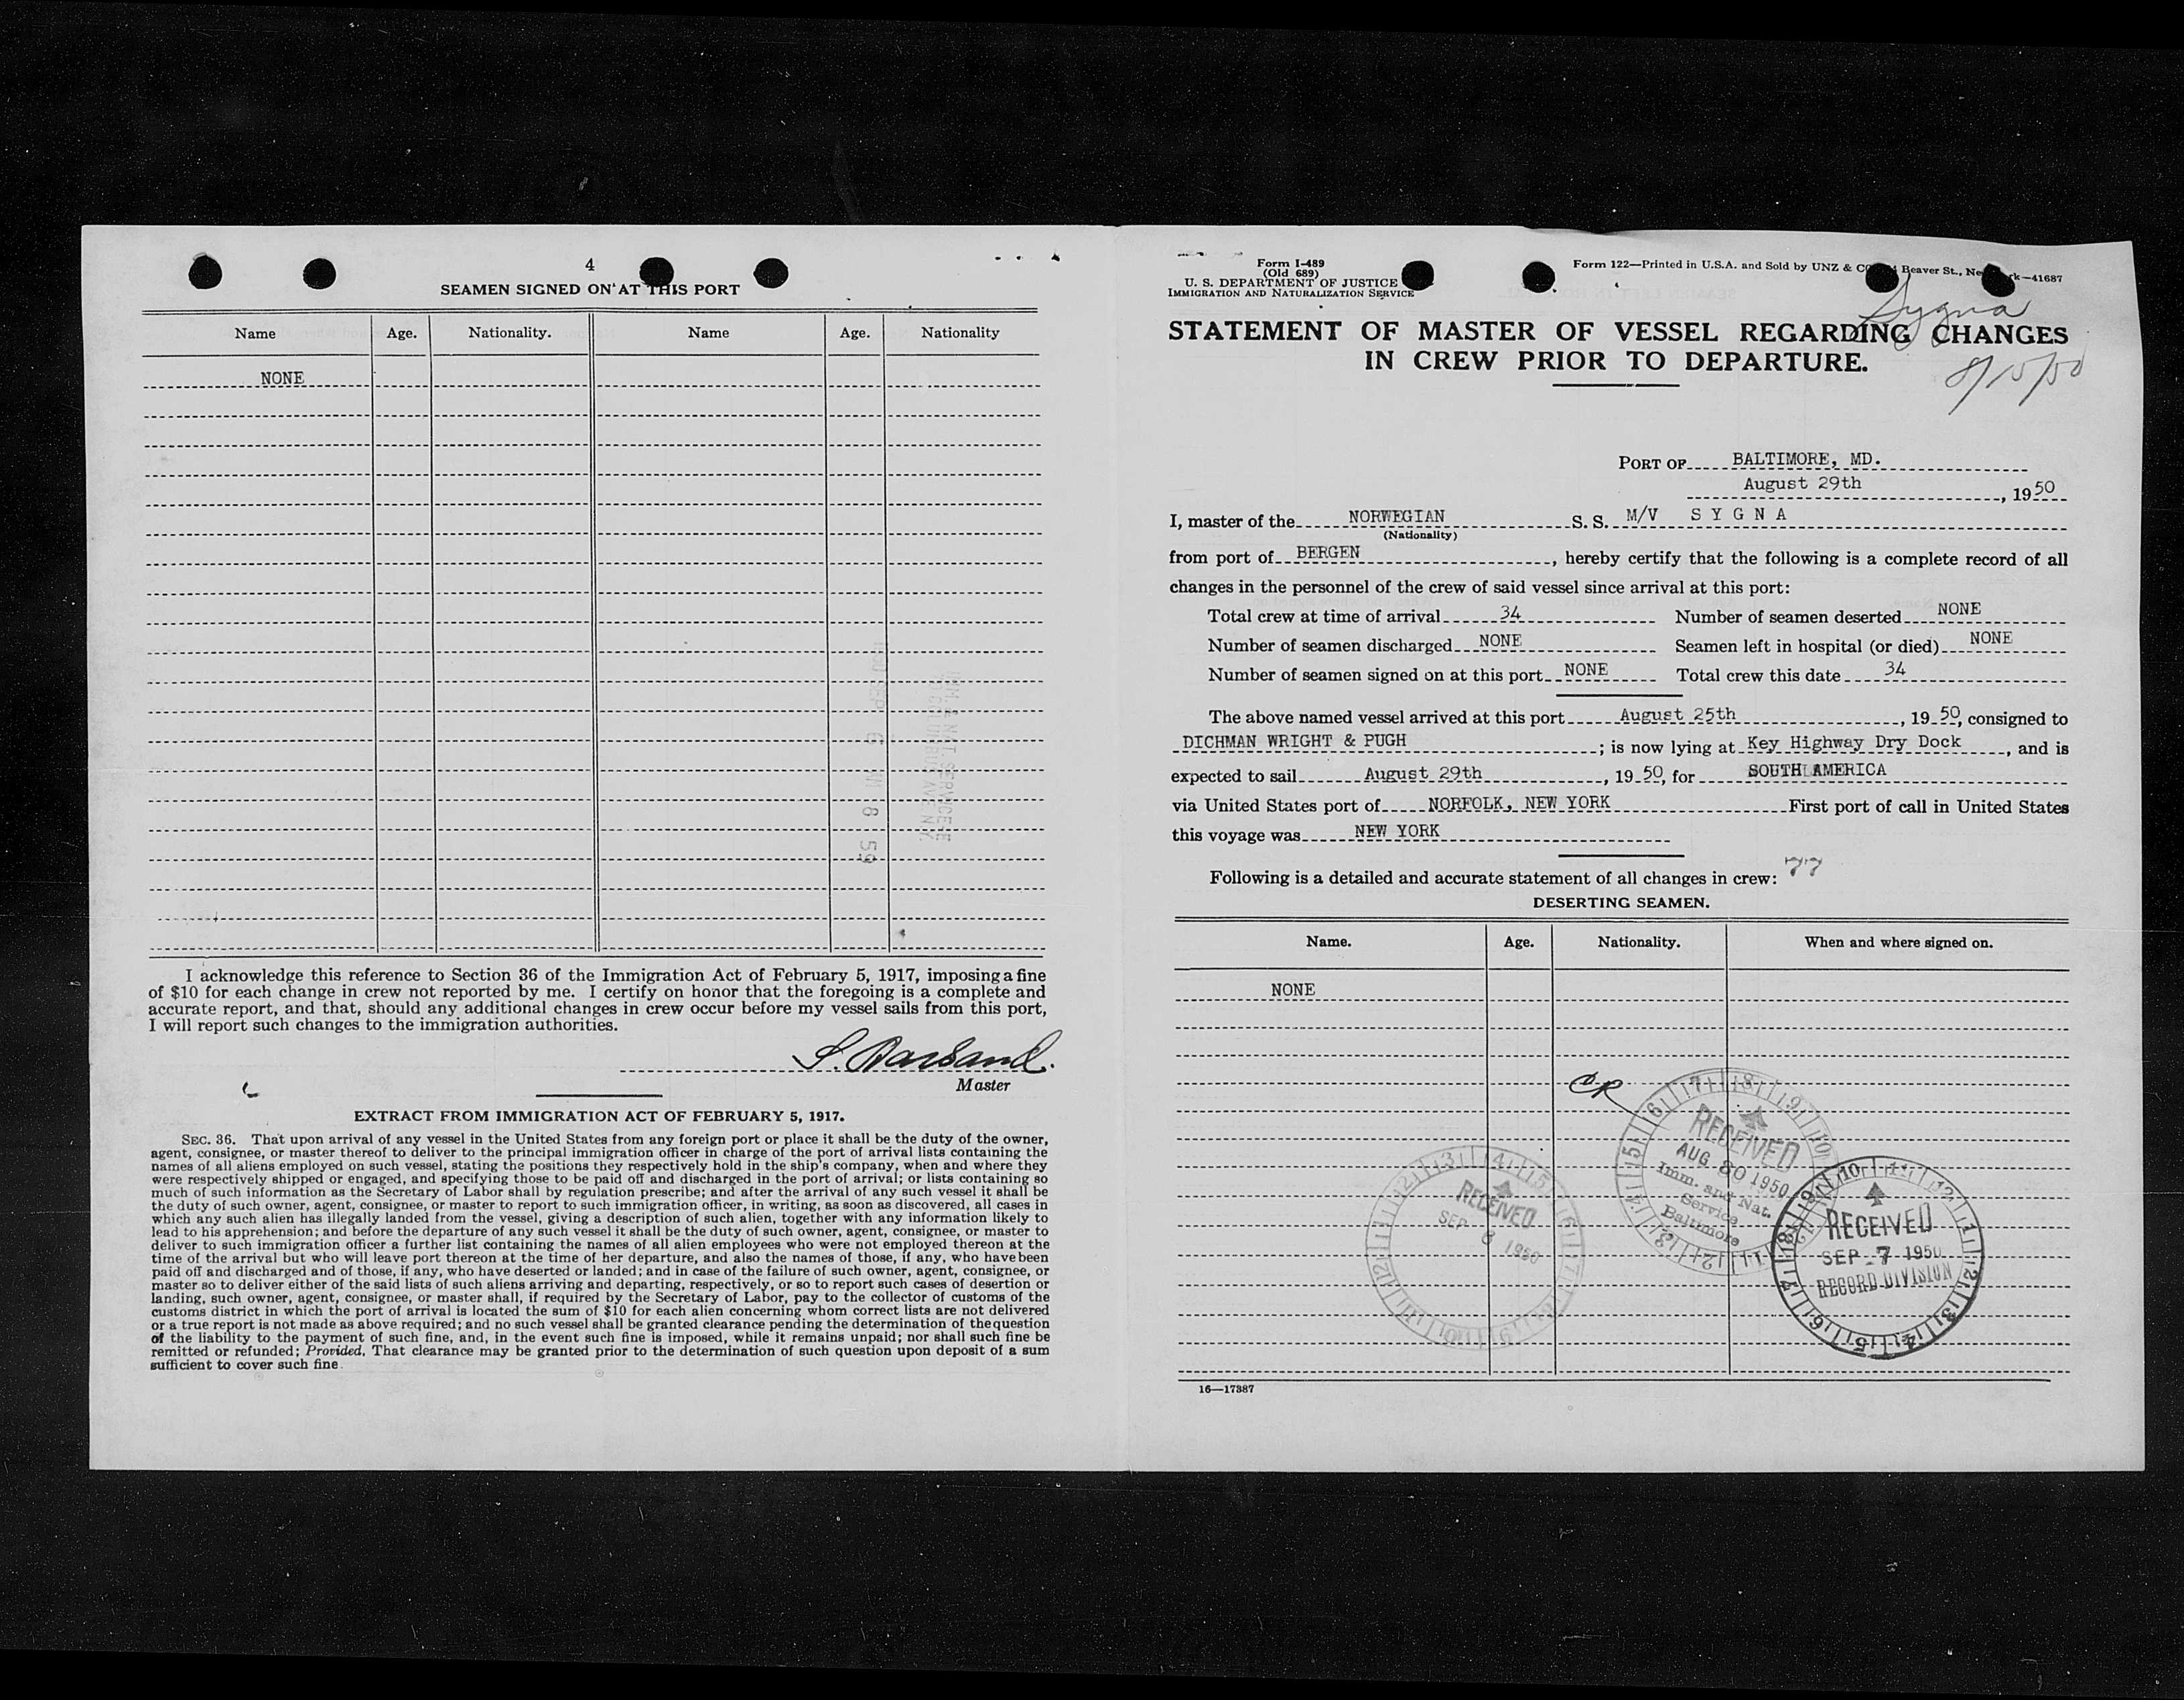 4
SEAMEN SIGNED ON AT THIS PORT
Name Age. Nationality. Name Age. Nationality
NONE
I acknowledge this reference to Section 36 of the Immigration Act of February 5, 1917, imposing a fine
of $10 for each change in crew not reported by me. I certify on honor that the foregoing is a complete and
accurate report, and that, should any additional changes in crew occur before my vessel sails from this port,
I will report such changes to the immigration authorities.
Master
EXTRACT FROM IMMIGRATION ACT OF FEBRUARY 5, 1917.
SEC. 36. That upon arrival of any vessel in the United States from any foreign port or place it shall be the duty of the owner,
agent, consignee, or master thereof to deliver to the principal immigration officer in charge of the port of arrival lists containing the
names of all aliens employed on such vessel, stating the positions they respectively hold in the ship's company, when and where they
were respectively shipped or engaged, and specifying those to be paid off and discharged in the port of arrival; or lists containing so
much of such information as the Secretary of Labor shall by regulation prescribe; and after the arrival of any such vessel it shall be
the duty of such owner, agent, consignee, or master to report to such immigration officer, in writing, as soon as discovered, all cases in
which any such alien has illegally landed from the vessel, giving a description of such alien, together with any information likely to
lead to his apprehension; and before the departure of any such vessel it shall be the duty of such owner, agent, consignee, or master to
deliver to such immigration officer a further list containing the names of all alien employees who were not employed thereon at the
time of the arrival but who will leave port thereon at the time of her departure, and also the names of those, if any, who have been
paid off and discharged and of those, if any, who have deserted or landed; and in case of the failure of such owner, agent, consignee, or
master so to deliver either of the said lists of such aliens arriving and departing, respectively, or so to report such cases of desertion or
landing, such owner, agent, consignee, or master shall, if required by the Secretary of Labor, pay to the collector of customs of the
customs district in which the port of arrival is located the sum of $10 for each alien concerning whom correct lists are not delivered
or a true report is not made as above required; and no such vessel shall be granted clearance pending the determination of the question
of the liability to the payment of such fine, and, in the event such fine is imposed, while it remains unpaid; nor shall such fine be
remitted or refunded; Provided, That clearance may be granted prior to the determination of such question upon deposit of a sum
sufficient to cover such fine.
Form I-489
(Old 689)
U. S. DEPARTMENT OF JUSTICE
IMMIGRATION AND NATURALIZATION SERVICE
Form 122—Printed in U.S.A. and Sold by UNZ & Beaver St., —41687
Sygna
8/15/50
STATEMENT OF MASTER OF VESSEL REGARDING CHANGES
IN CREW PRIOR TO DEPARTURE.
PORT OF BALTIMORE, MD.
August 29th, 1950
I, master of the NORWEGIAN S. S. M/V SYGNA
(Nationality)
from port of BERGEN, hereby certify that the following is a complete record of all
changes in the personnel of the crew of said vessel since arrival at this port:
Total crew at time of arrival 34 Number of seamen deserted NONE
Number of seamen discharged NONE Seamen left in hospital (or died) NONE
Number of seamen signed on at this port NONE Total crew this date 34
The above named vessel arrived at this port August 25th, 1950, consigned to
DICHMAN WRIGHT & PUGH; is now lying at Key Highway Dry Dock, and is
expected to sail August 29th, 1950, for SOUTH AMERICA
via United States port of NORFOLK, NEW YORK First port of call in United States
this voyage was NEW YORK
Following is a detailed and accurate statement of all changes in crew: 77
DESERTING SEAMEN.
Name. Age. Nationality. When and where signed on.
NONE
CR
RECEIVED
AUG 30 1950
Imm. and Nat.
Service
Baltimore
RECEIVED
SEP 8 1950
RECEIVED
SEP 7 1950
RECORD DIVISION
16—17387